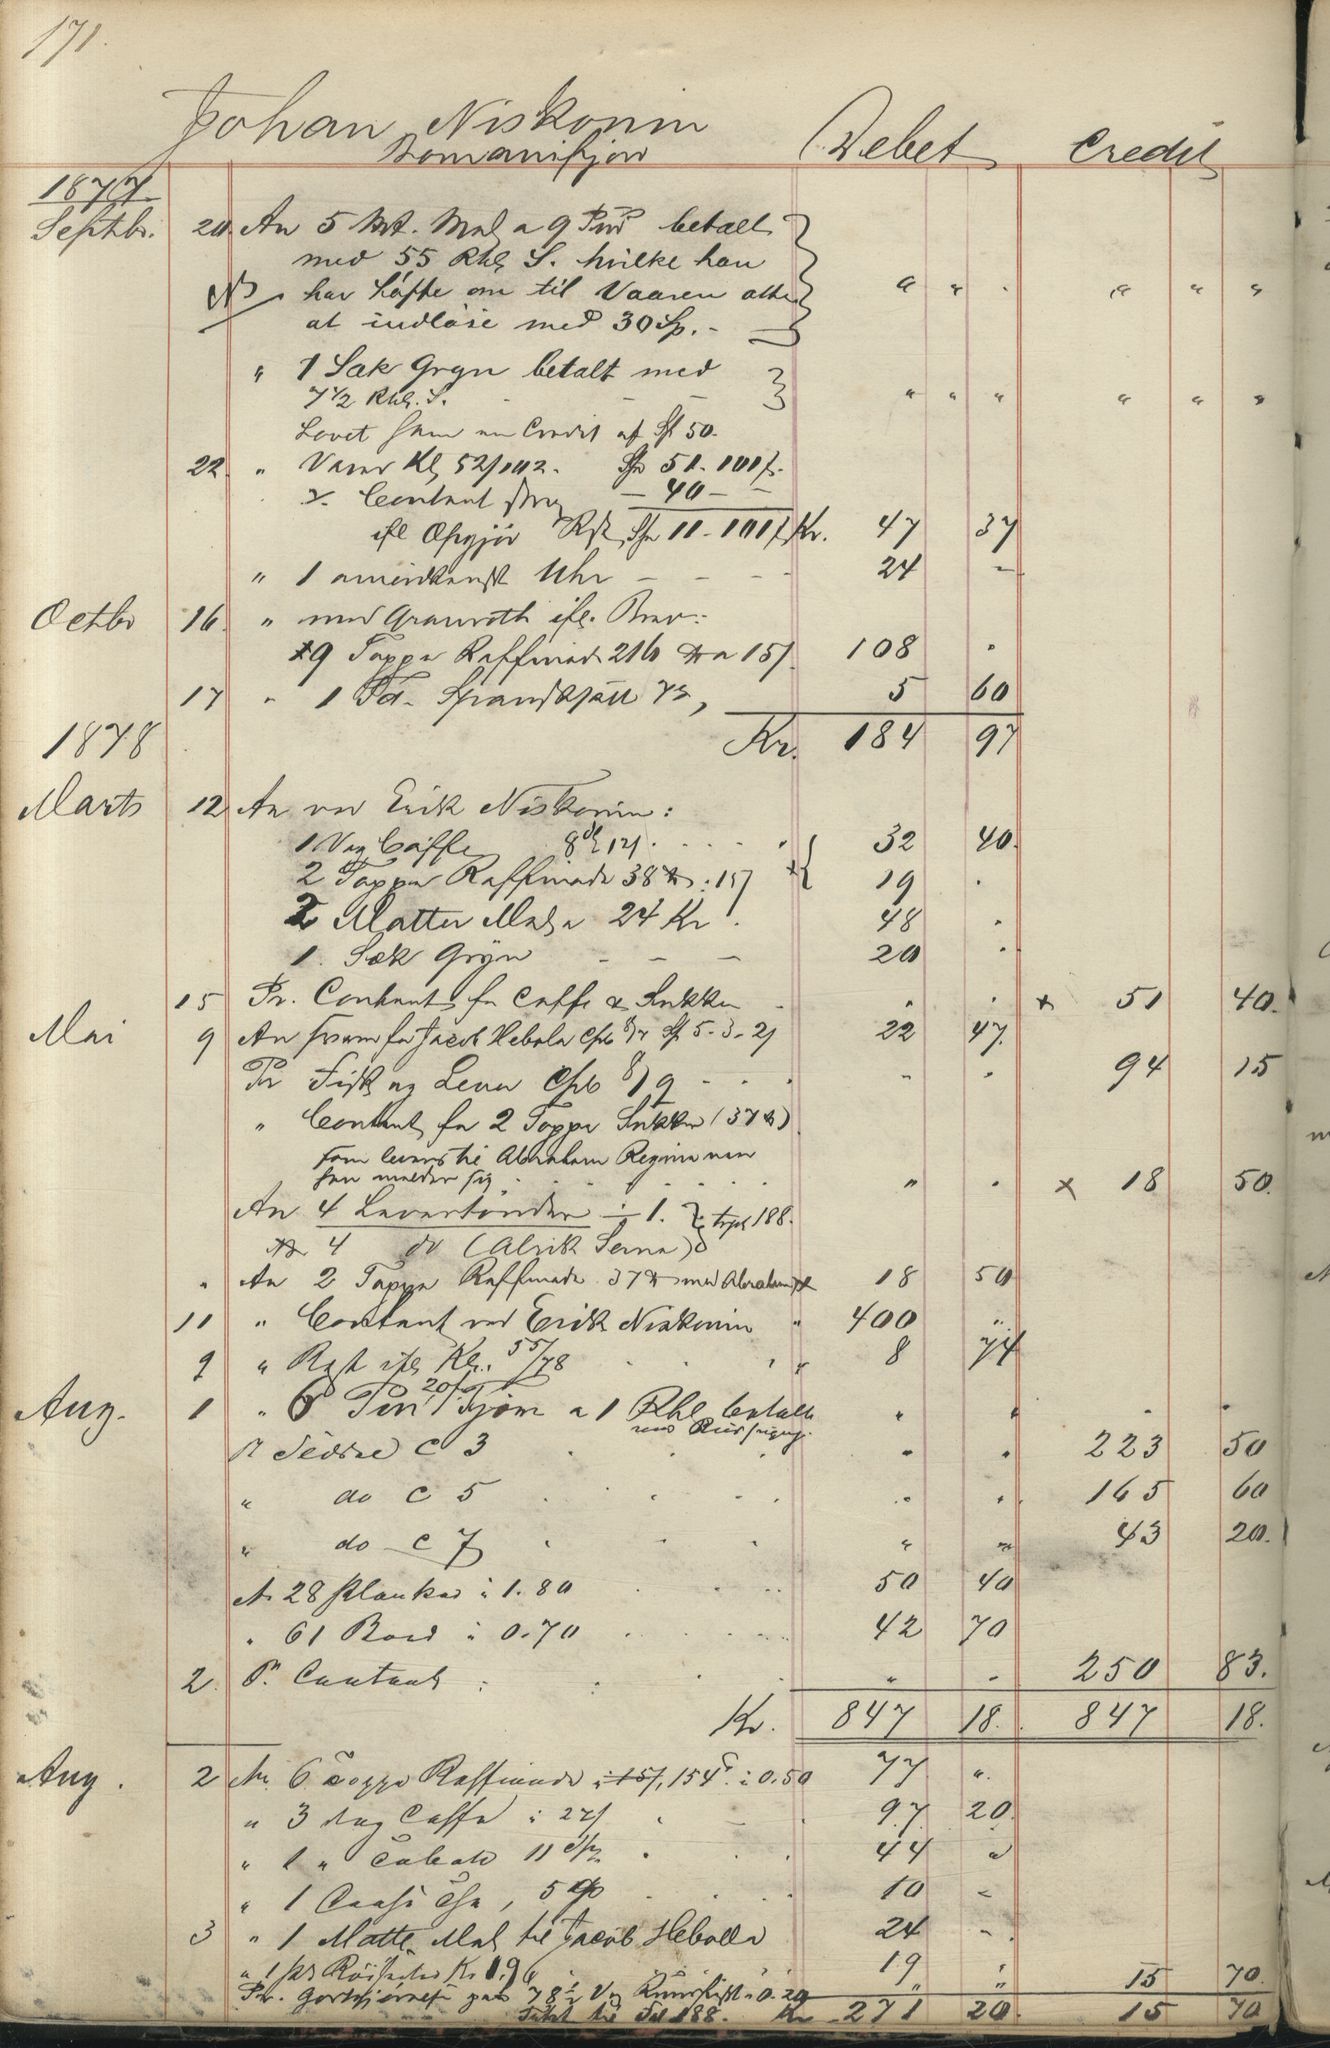 171.
Johan Niskonin
Komanifjord Debet Credit
1877
Septbr. 20. An 5 Mt. Mel a 9 Pud betalt
med 55 Rbl S. hvilke han
NB har Løfte om til Vaaren atter " " . " " "
at indløse med 30 Sp. -
" 1 Sæk Gryn betalt med
7 1/2 Rbl. S. - - - " " " " " "
Lovet ham en Credit af Sp 50.
22. " Varer Kl. 52/102. Sp 51. 101 f.
% Contant - 40 - -
ifl Opgjør Rest Sp 11 - 101 f Kr. 47 37
" 1 amerikansk Uhr - - - - 24 -
Octbr 16. " med Granroth ifl. Brev:
x9 Toppe Raffinade 216 a 15f. 108 .
17 " 1 Td. 5 60
1878 Kr. 184 97
Marts 12 An ved Erik Niskonin:
1 Vog Caffe 12f . . . . . 32 40.
2 Toppe Raffinade 38 : 15f x 19 .
2 Matter Mel a 24 Kr. 48 .
1. Sæk Gryn - - - 20 .
15 Pr. Contant for Caffe & Sukker - . . x 51 40.
Mai 9 An fremf Jacob Hebola Sp 5-3-21 22 47.
Pr Fisk og Lever 8/9 - . . " " 94 15
" Contant for 2 Toppe Sukker (37)
som leveres til Abraham Regina naar
han melder sig . . . . . . " . x 18 50.
An 4 Levertønder ÷ 1. 188.
4 do (Alrik Serna)
" An 2 Toppe Raffinade 37 med Abraham 18 50
11 " Contant ved Erik Niskonin " 400 "
9 " Rest ifl Kl. 55/78 . . . " 8 74
Aug. 1 " 6 Tjære a 1 Rbl betalt " " . .
Pr Sedler C 3 . . . " " 223 50
" do C 5 . . . . . . 165 60
" do C 7 . . . " " 43 20.
An 28 Planker a 1.80 . . . 50 40
" 61 Bord a 0.70 . . . . . 42 70
2. Pr. Contant . . . . " . 250 83.
Kr. 847 18. 847 18.
Aug. 2 An 6 Toppe Raffinade a 15f, 154 a 0.50 77 ".
" 3 Vog Caffe a 27f . - . 97 20.
" 1 " Tobak 11 . . . 44 "
" 1 The, 5 . . . . 10 -
3 " 1 Matte Mel til Jacob Hebolla 24 -
" 1 Kr 1.90 . . . 19 .
Pr. 78 1/2 Vog a 0.20 " " 15 70.
Ført til Fol 188. Kr 271 20. 15 70